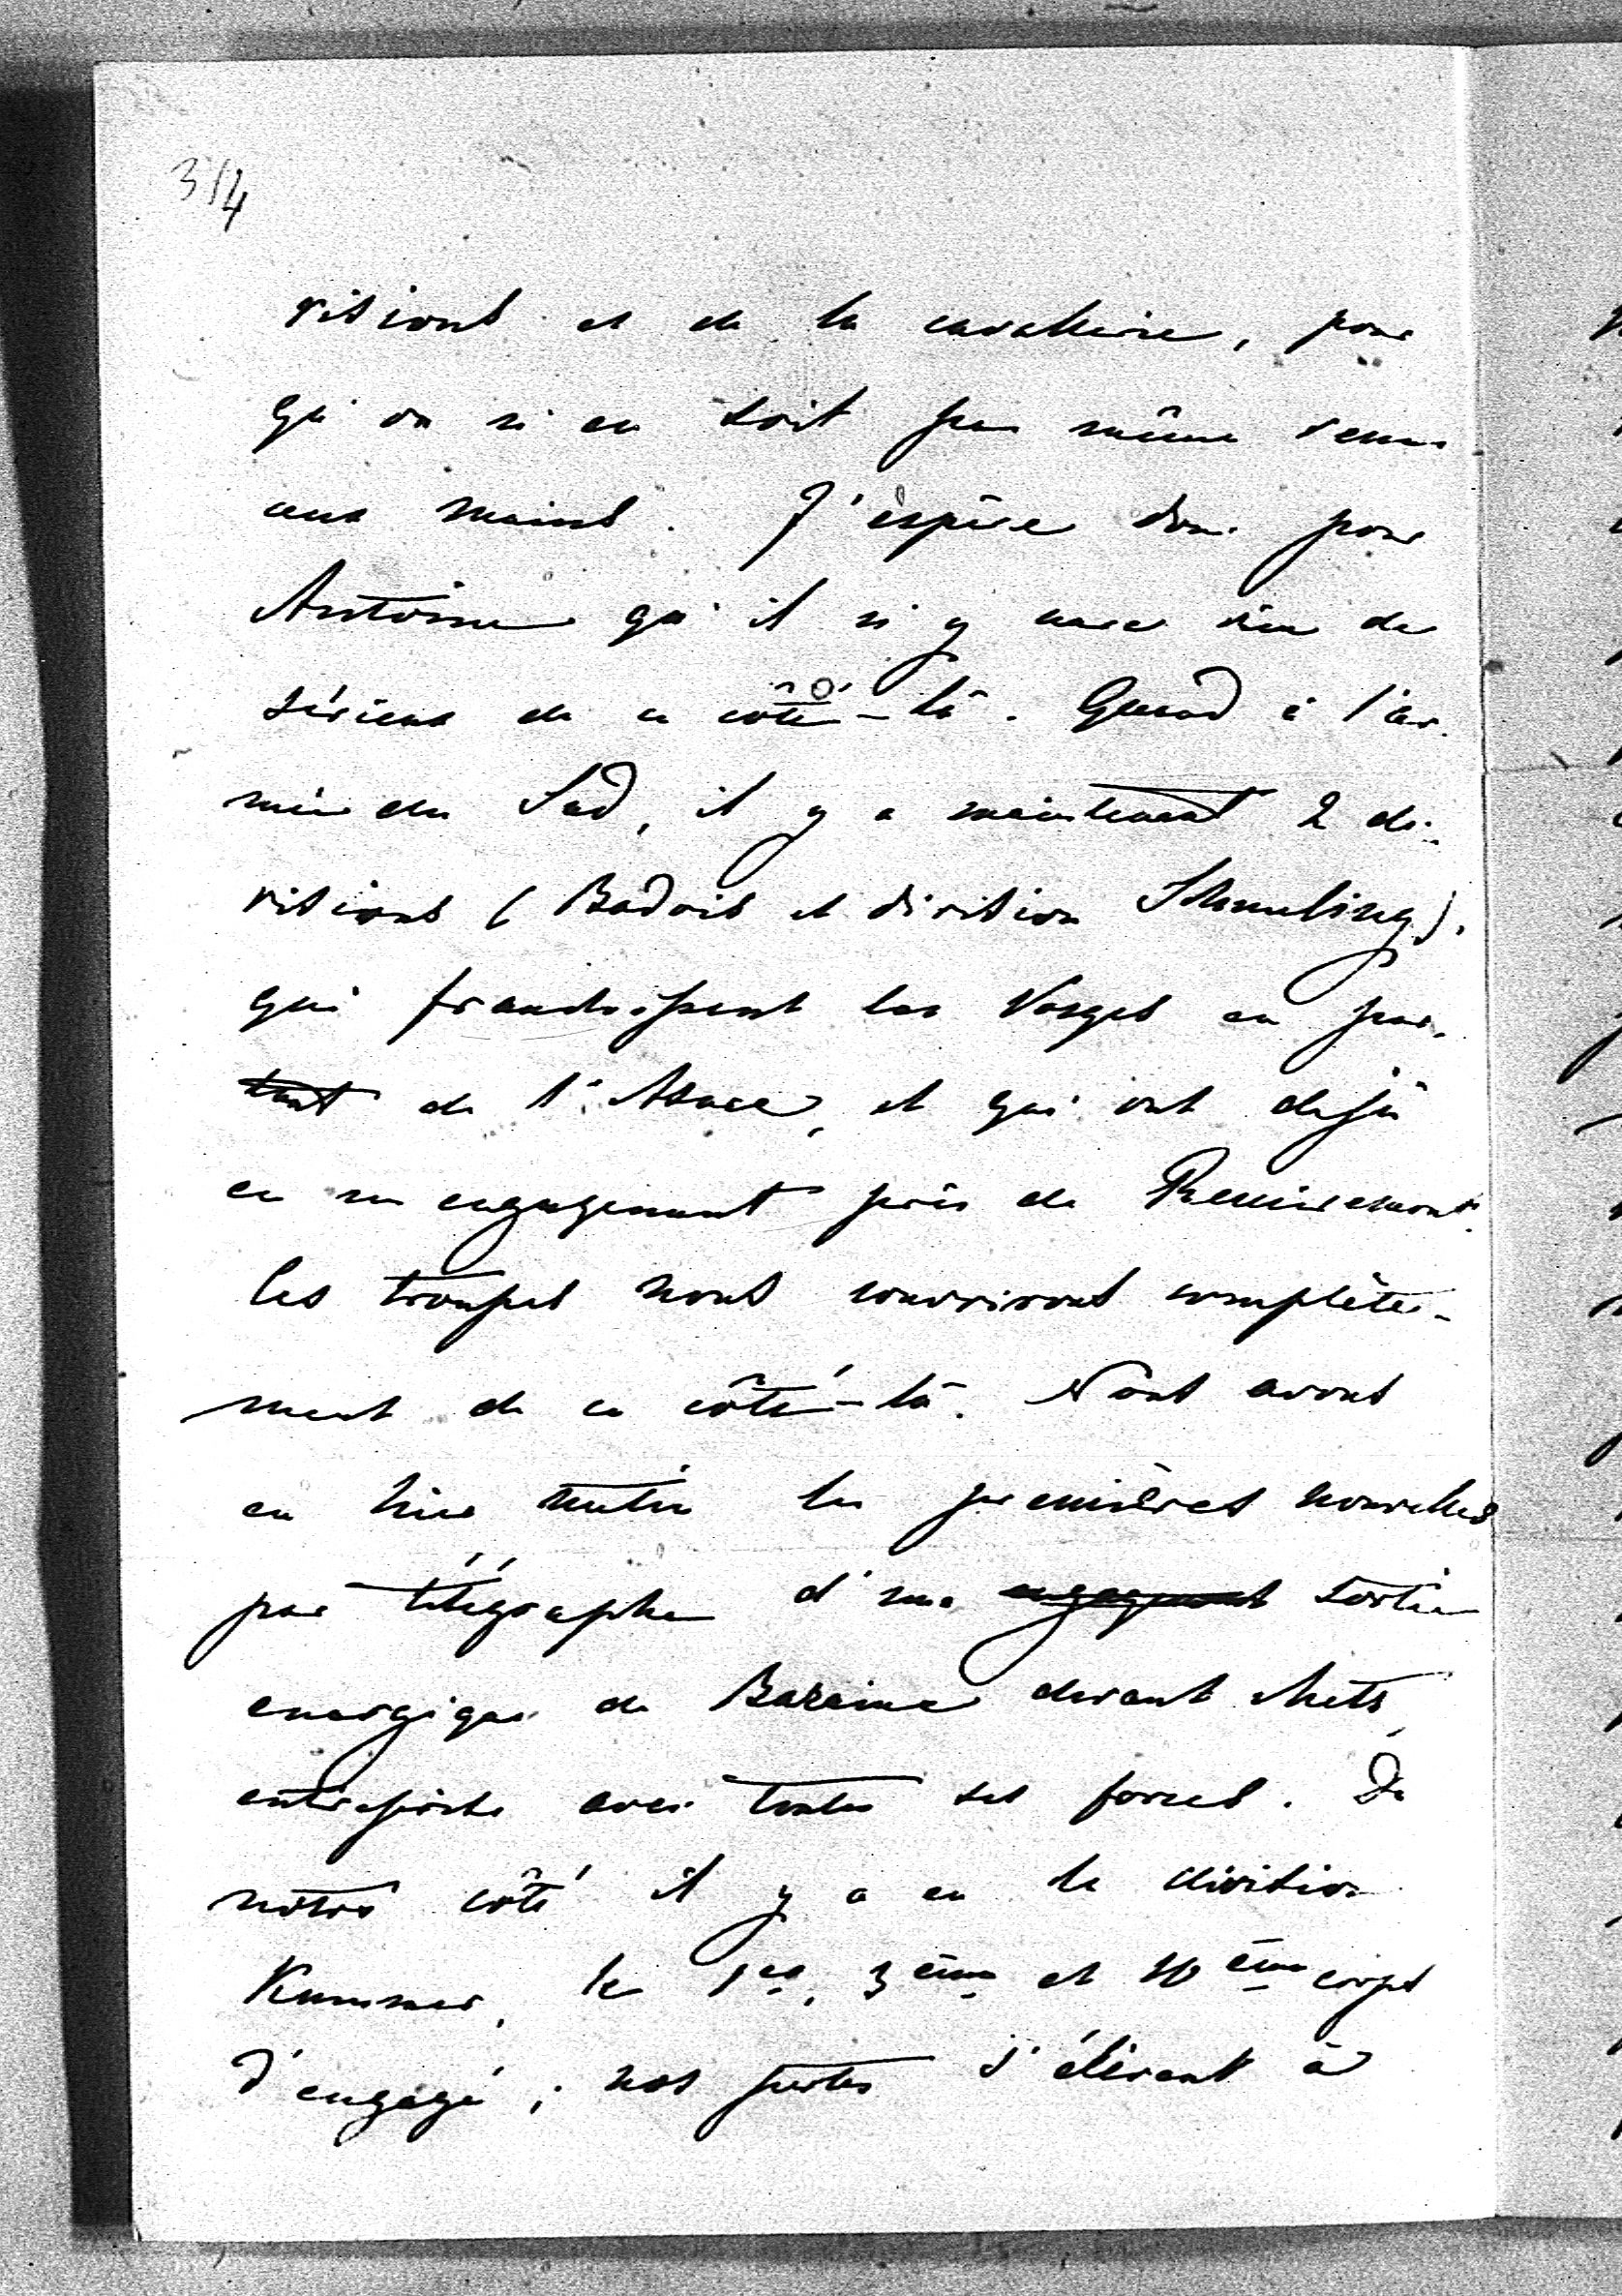 314
visions et de la cavallerie, pour
qu'on n'en soit pas même venus
aux mains. J'espère donc pour
Antoine qu'il n'y aura rien de
sérieux de ce côté-là. Quand à l'ar-
mée du Sud, il y a maintenant 2 di-
visions (Badois et division Schmeling).
qui franchissent les Vosges en par-
tant de l'Alsace, et qui ont dejà
eu un engagement près de Remiremont.
Ces troupes nous couvriront complète-
ment de ce côté-là. Nous avons
eu hier matin les premières nouvelles
par télégraphe d'une engagement sortie
energique de Bazaine devant Metz,
entreprise avec toutes ses forces. De
notre côté il y a eu la division
Kummer, le 1er, 3ème et 10ème corps
d'engagé; nos pertes s'élèvent à